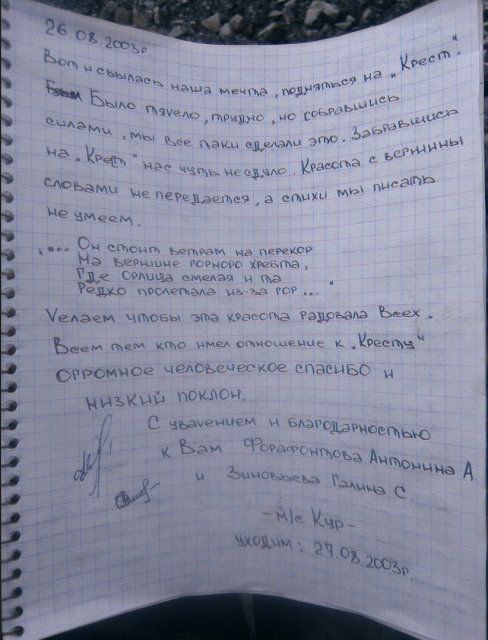 26.08.2003г.
Вот и сбылась наша мечта, подняться на „Крест".
Было тяжело, трудно, но собравшись
силами, мы все таки сделали это. Забравшись
на „Крест" нас чуть не сдуло. Красота с вершины
словами не передается, а стихи мы писать
не умеем.
„... Он стоит ветрам на перекор
На вершине горного хребта,
Где орлица смелая и та
Редко пролетала из-за гор ..."
Желаем чтобы эта красота радовала Всех.
Всем тем кто имел отношение к „Кресту"
огромное человеческое спасибо и
низкий поклон.
С уважением и благодарностью
к Вам Форафонтова Антонина А
и Зиновьева Галина С.
- м/с Кур -
уходим: 27.08.2003г.